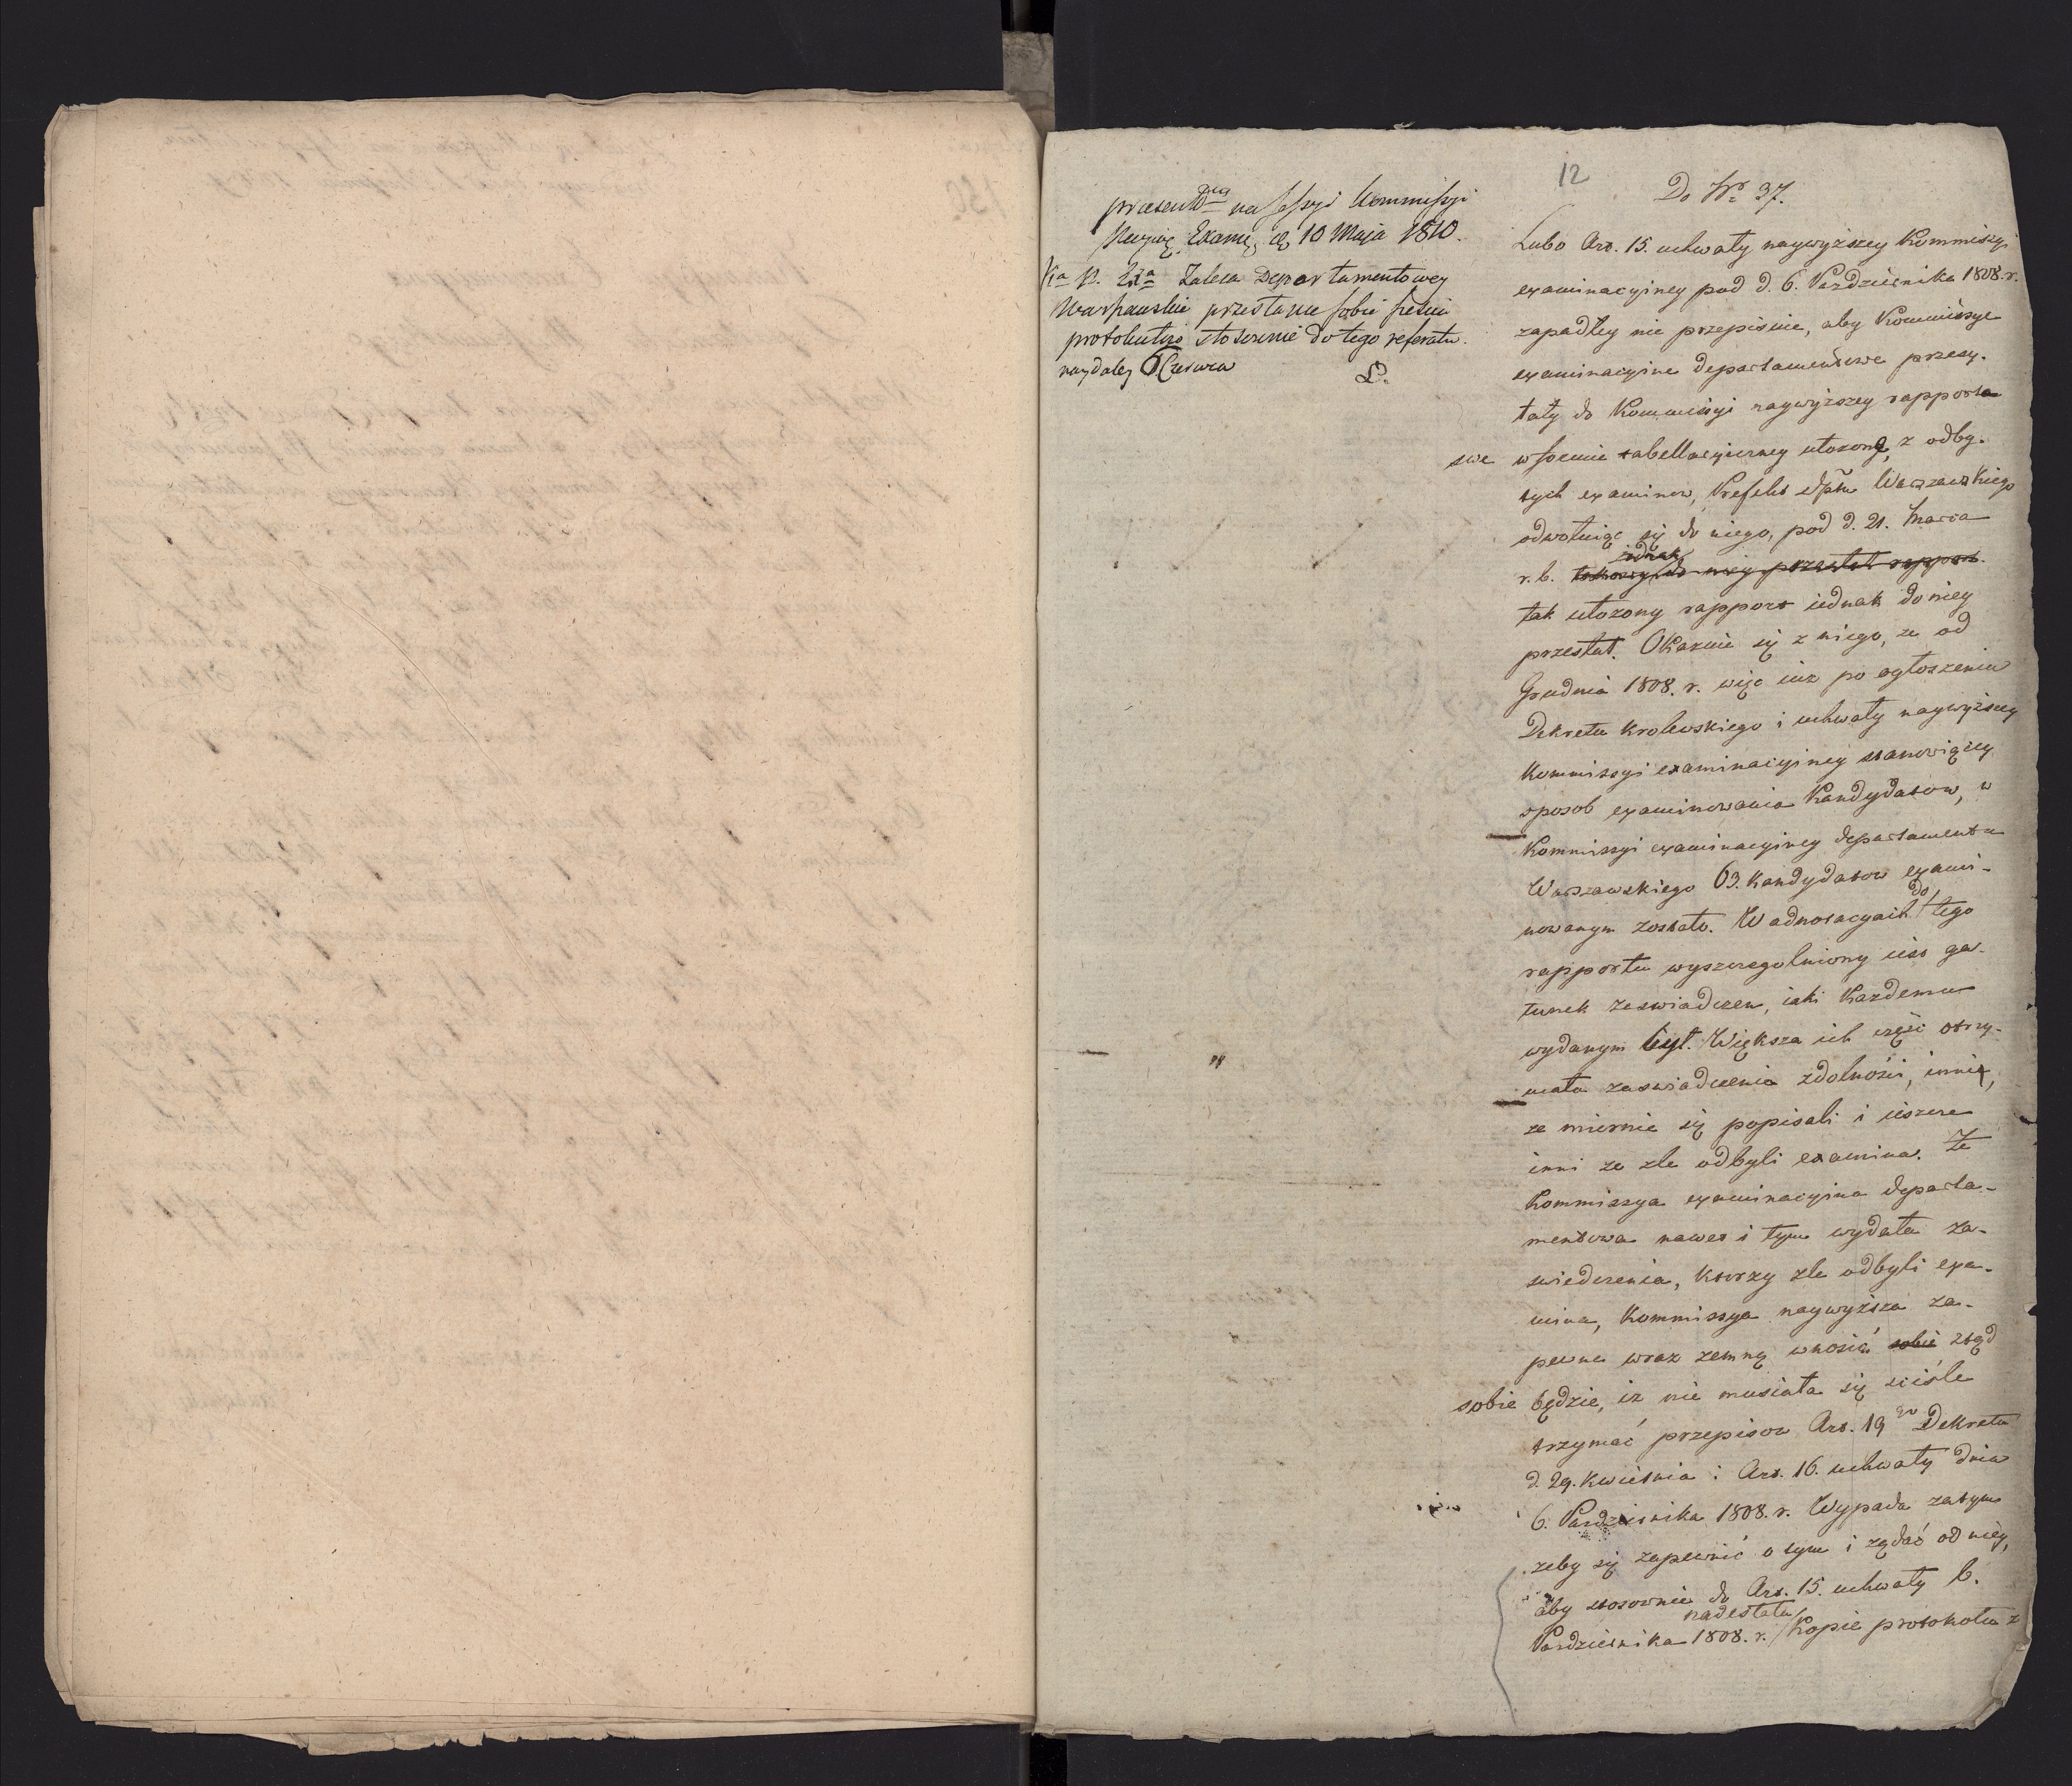 12
praesentowa na Sessyi Kommissyi
Naywię. Exami, d. 10 Maja 1810.
Zaleca Departamentowey
Warszawskie przesłanie sobie
protokułów stosownie do tego referatu.
naydaley Czerwca
Do Nr. 37.
Lubo Art. 15. uchwały naywyższey Kommiszyi
examinacyiney pod d. 6. Pazdziernika 1808. r.
zapadłey nie przepisuie, aby Kommissye
examinacyine departamentowe przesy-
łały do Kommissyi naywyższey rapporta
swe w formie tabellaryczney ułożone, z odby-
tych examinow, Prefekt dptu Warszawskiego
odwołuiąc się do niego, pod d. 21. Marca
r. b. iednak do niey przesłał rapport.
tak ułozony rapport iednak do niey
przesłał. Okazuie się z niego, ze od
Grudnia 1808. r. więc iuz po ogłoszeniu
Dekretu Krolewskiego i uchwały naywyższey
Kommissyi examinacyiney stanowiącey
sposob examinowania Kandydatow, w
Kommissyi examinacyiney departamentu
Warszawskiego 63. Kandydatow exami-
nowanym zostało. W adnotacyach do tego
rapportu wyszczegolniony iest ga-
tunek zaswiadczen, iaki Kazdemu
wydanym był. Większa ich część otrzy-
mała zaswiadczenia zdolności, inni,
ze miernie się popisali i ieszcze
inni ze zle odbyli examina. Ze
Kommissya examinacyina departa-
mentowa nawet i tym wydała za-
swiedczenia, ktorzy zle odbyli exa-
mina, Kommissya naywyższa za-
pewne wraz zemną wnosić sobie ztąd
sobie będzie, iz nie musiała się ściśle
trzymać przepisow Art. 19go Dekretu
d. 29. Kwietnia i Art. 16. uchwały dnia
6. Pazdziernika 1808. r. Wypada zatym
zeby się zapewnić o tym i ządać od niey,
aby stosownie do Art. 15. uchwały 6.
Pazdziernika 1808. r. nadesłała Kopie protokołu z